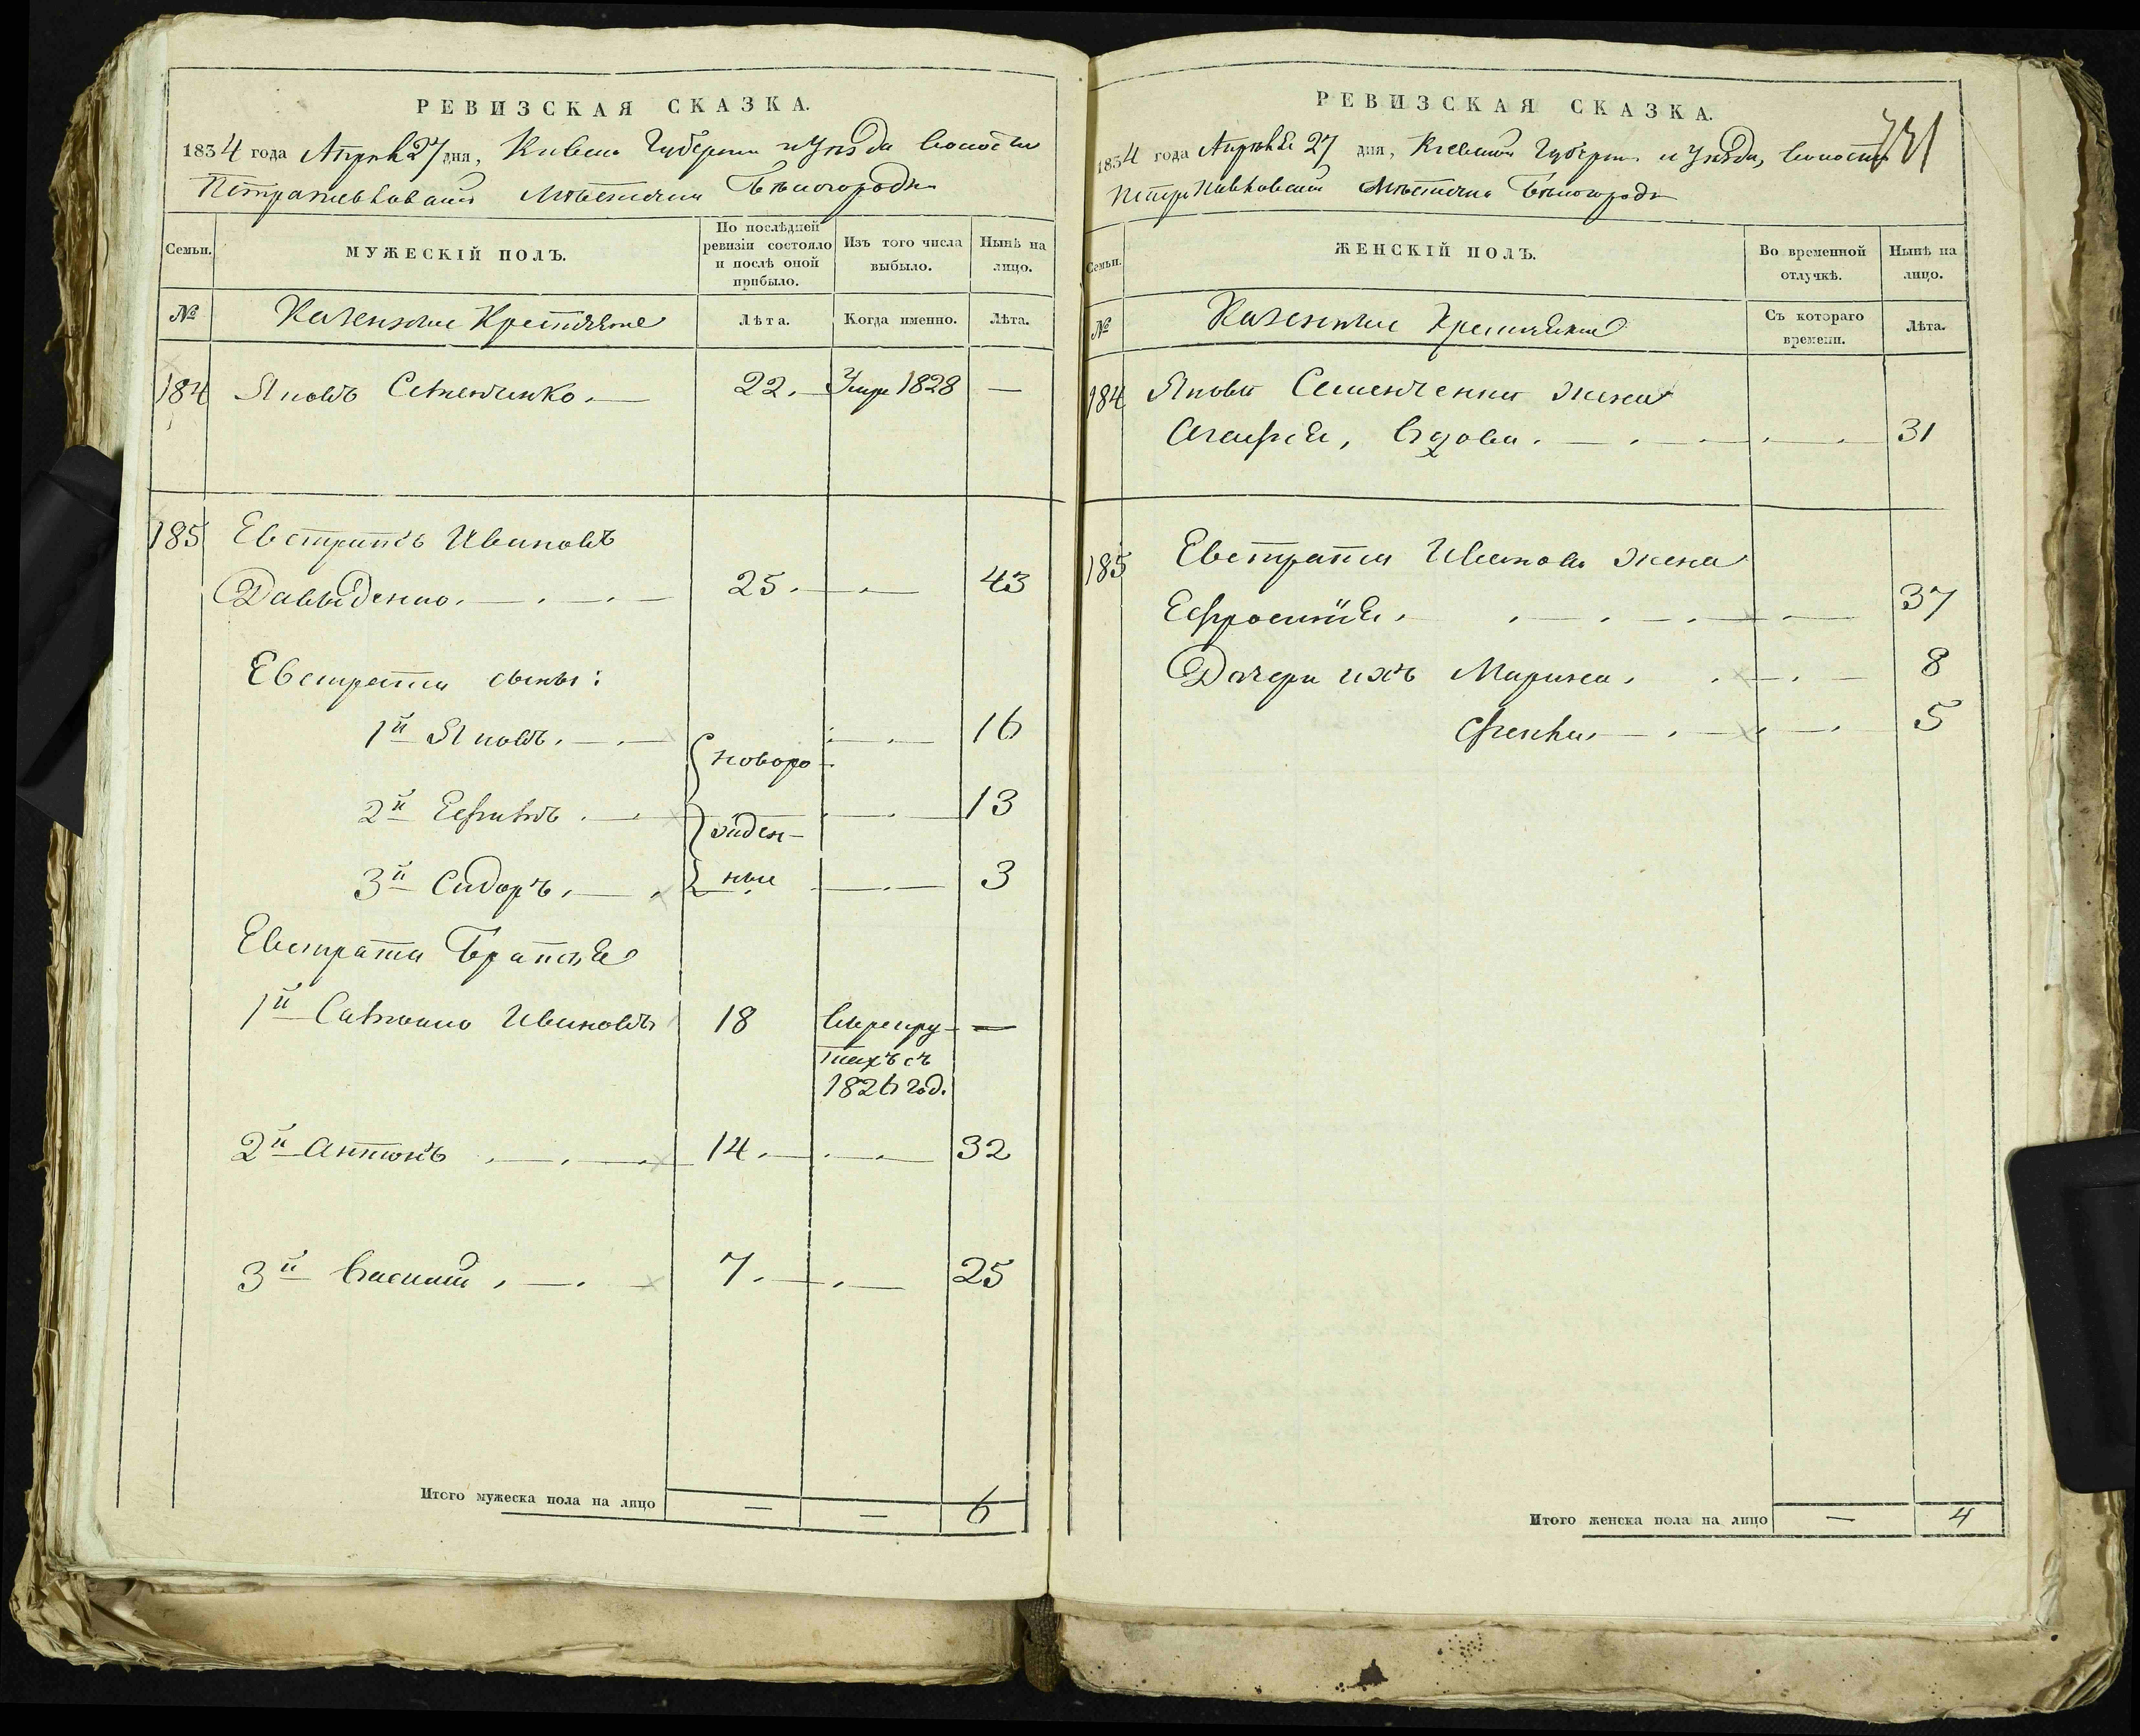 РЕВИЗСКАЯ СКАЗКА.
1834 года Апреля 27 дня, Киевской Губернии и Уезда волости
Петропавловской Местечка Белогородки
Семьи.
МУЖЕСКІЙ ПОЛЪ.
По послѣдней ревизіи состояло и послѣ оной прибыло.
Изъ того числа выбыло.
Нынѣ на лицо.
№
Казенные Крестьяне
Лѣта.
Когда именно.
Лѣта.
184 Яковъ Семенченко. 22. Умре 1828 —
185 Евстратій Ивановъ
Давыденко. 25. 43
Евстратія сыны:
1й Яковъ. новоро- 16
2й Ефимъ. жден- 13
3й Сидоръ. ные 3
Евстратія Братья
1й Ивановъ 18 Въ рекру- —
тахъ съ
1826 год.
2й Антонъ 14. 32
3й Василій 7. 25
Итого мужеска пола на лицо — — 6
РЕВИЗСКАЯ СКАЗКА.
731
1834 года Апреля 27 дня, Киевской Губернии и Уезда, волости
Петропавловской Местечка Белогородки
Семьи.
ЖЕНСКІЙ ПОЛЪ.
Во временной отлучкѣ.
Нынѣ на лицо.
№
Казенные Крестьяне
Съ котораго времени.
Лѣта.
184 Якова Семенченка жена
Агафія, вдова. 31
185 Евстратія Иванова жена
Ефросинія. 37
Дочери ихъ Марина. 8
5
Итого женска пола на лицо — 4